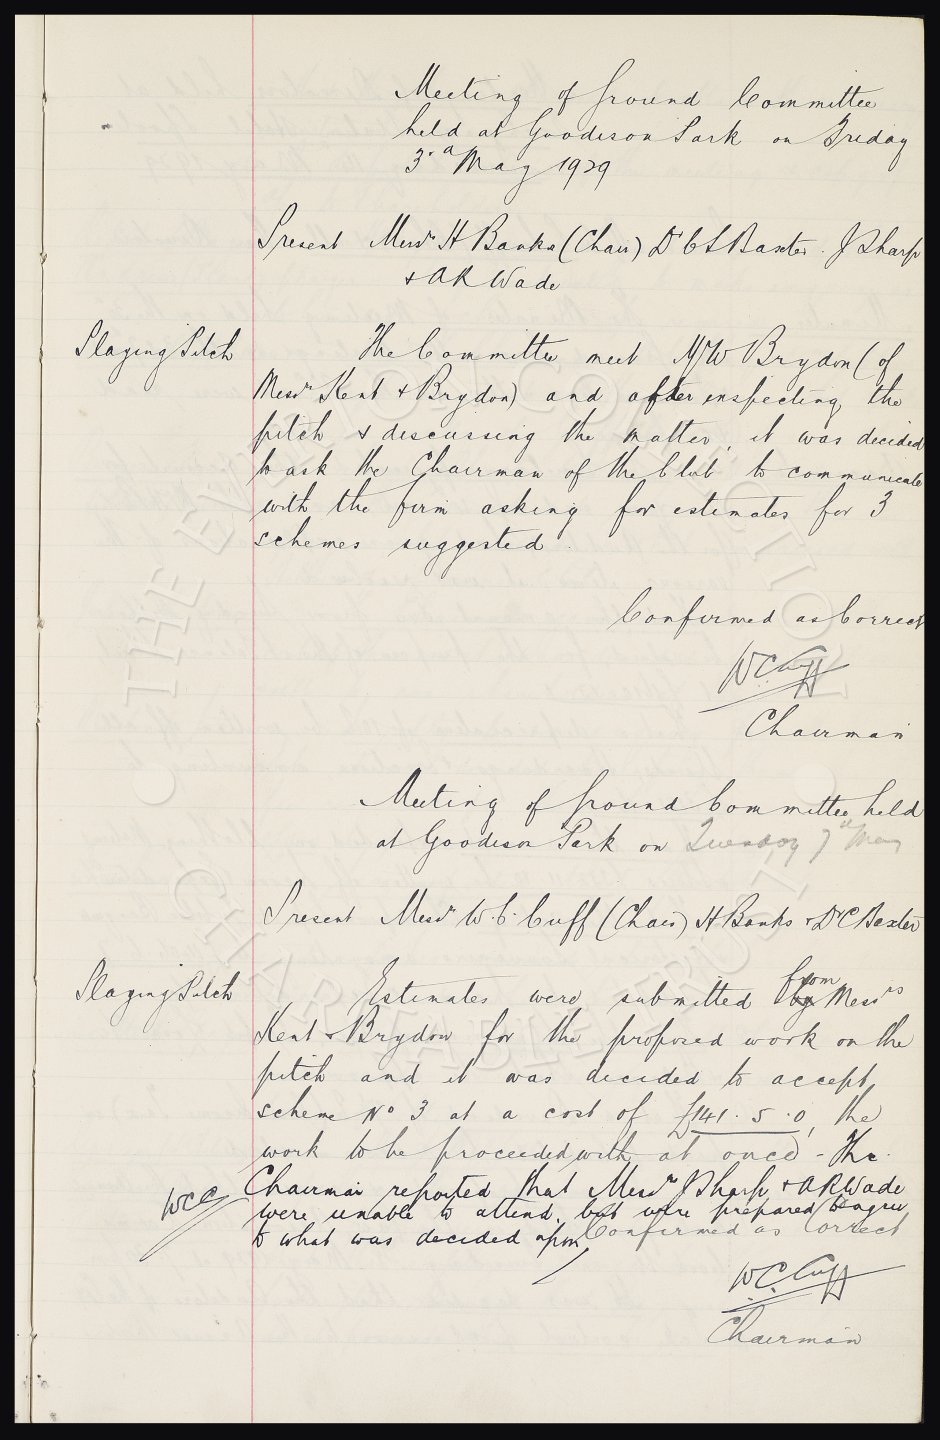 Meeting of Ground Committee
held at Goodison Park on Friday
3rd May 1929
Present Messrs H Banks (Chair) Dr C S Baxter. J Sharp
+ A R Wade
Playing Pitch
The Committee meet Mr W Brydon (of
Messrs Kent + Brydon) and after inspecting the
pitch & discussing the matter, it was decided
to ask the Chairman of the Club to communicate
with the firm asking for estimates for 3
schemes suggested.
Confirmed as Correct
W C Cuff
Chairman
Meeting of Ground Committee held
at Goodison Park on Tuesday 7th May
Present Messrs W. C. Cuff (Chair) H Banks + Dr C Baxter
Playing Pitch
Estimates were submitted by from Messrs
Kent + Brydon for the proposed work on the
pitch and it was decided to accept
scheme No 3 at a cost of £141. 5. 0, the
work to be proceeded with at once - The
Chairman reported that Messrs J Sharp + A R Wade
WCC
were unable to attend, but were prepared to agree
to what was decided upon,
Confirmed as Correct
W. C. Cuff
Chairman
THE EVERTON COLLECTION